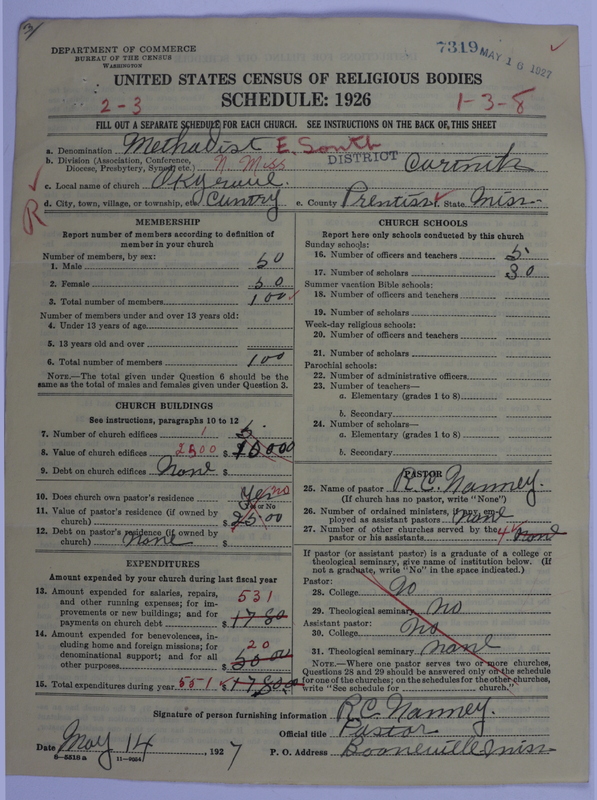 3
DEPARTMENT OF COMMERCE
BUREAU OF THE CENSUS
WASHINGTON
7319 MAY 16 1927
UNITED STATES CENSUS OF RELIGIOUS BODIES
2-3 SCHEDULE: 1926 1-3-8
FILL OUT A SEPARATE SCHEDULE FOR EACH CHURCH. SEE INSTRUCTIONS ON THE BACK OF THIS SHEET
a. Denomination Methodist E. South
b. Division (Association, Conference, Diocese, Presbytery, Synod, etc.) N. Miss DISTRICT Corinth
c. Local name of church
d. City, town, village, or township, etc. Cuntry e. County Prentiss State Miss
R
MEMBERSHIP
Report number of members according to definition of member in your church
Number of members, by sex:
1. Male 50
2. Female 50
3. Total number of members 100
Number of members under and over 13 years old:
4. Under 13 years of age
5. 13 years old and over
6. Total number of members 100
NOTE.—The total given under Question 6 should be the same as the total of males and females given under Question 3.
CHURCH BUILDINGS
See instructions, paragraphs 10 to 12
7. Number of church edifices 1 5
8. Value of church edifices 2500 $ 10000
9. Debt on church edifices None $
10. Does church own pastor's residence Yes no
Yes or No
11. Value of pastor's residence (if owned by church) $ 2500
12. Debt on pastor's residence (if owned by church) None $
EXPENDITURES
Amount expended by your church during last fiscal year
13. Amount expended for salaries, repairs, and other running expenses; for improvements or new buildings; and for payments on church debt 531 $ 1780
14. Amount expended for benevolences, including home and foreign missions; for denominational support; and for all other purposes 20 $
15. Total expenditures during year 551 $ 1780
CHURCH SCHOOLS
Report here only schools conducted by this church
Sunday schools:
16. Number of officers and teachers 5
17. Number of scholars 30
Summer vacation Bible schools:
18. Number of officers and teachers
19. Number of scholars
Week-day religious schools:
20. Number of officers and teachers
21. Number of scholars
Parochial schools:
22. Number of administrative officers
23. Number of teachers—
a. Elementary (grades 1 to 8)
b. Secondary
24. Number of scholars—
a. Elementary (grades 1 to 8)
b. Secondary
PASTOR
25. Name of pastor R.C. Nanney.
(If church has no pastor, write "None")
26. Number of ordained ministers, if any, employed as assistant pastors none
27. Number of other churches served by the pastor or his assistants 4 none
If pastor (or assistant pastor) is a graduate of a college or theological seminary, give name of institution below. (If not a graduate, write "No" in the space indicated.)
Pastor:
28. College no
29. Theological seminary no
Assistant pastor:
30. College no
31. Theological seminary none
NOTE.—Where one pastor serves two or more churches, Questions 28 and 29 should be answered only on the schedule for one of the churches; on the schedules for the other churches, write "See schedule for church."
Signature of person furnishing information R.C. Nanney.
Official title Pastor
Date May 14, 1927 P. O. Address Booneville Miss
8-5518 a 11-9054